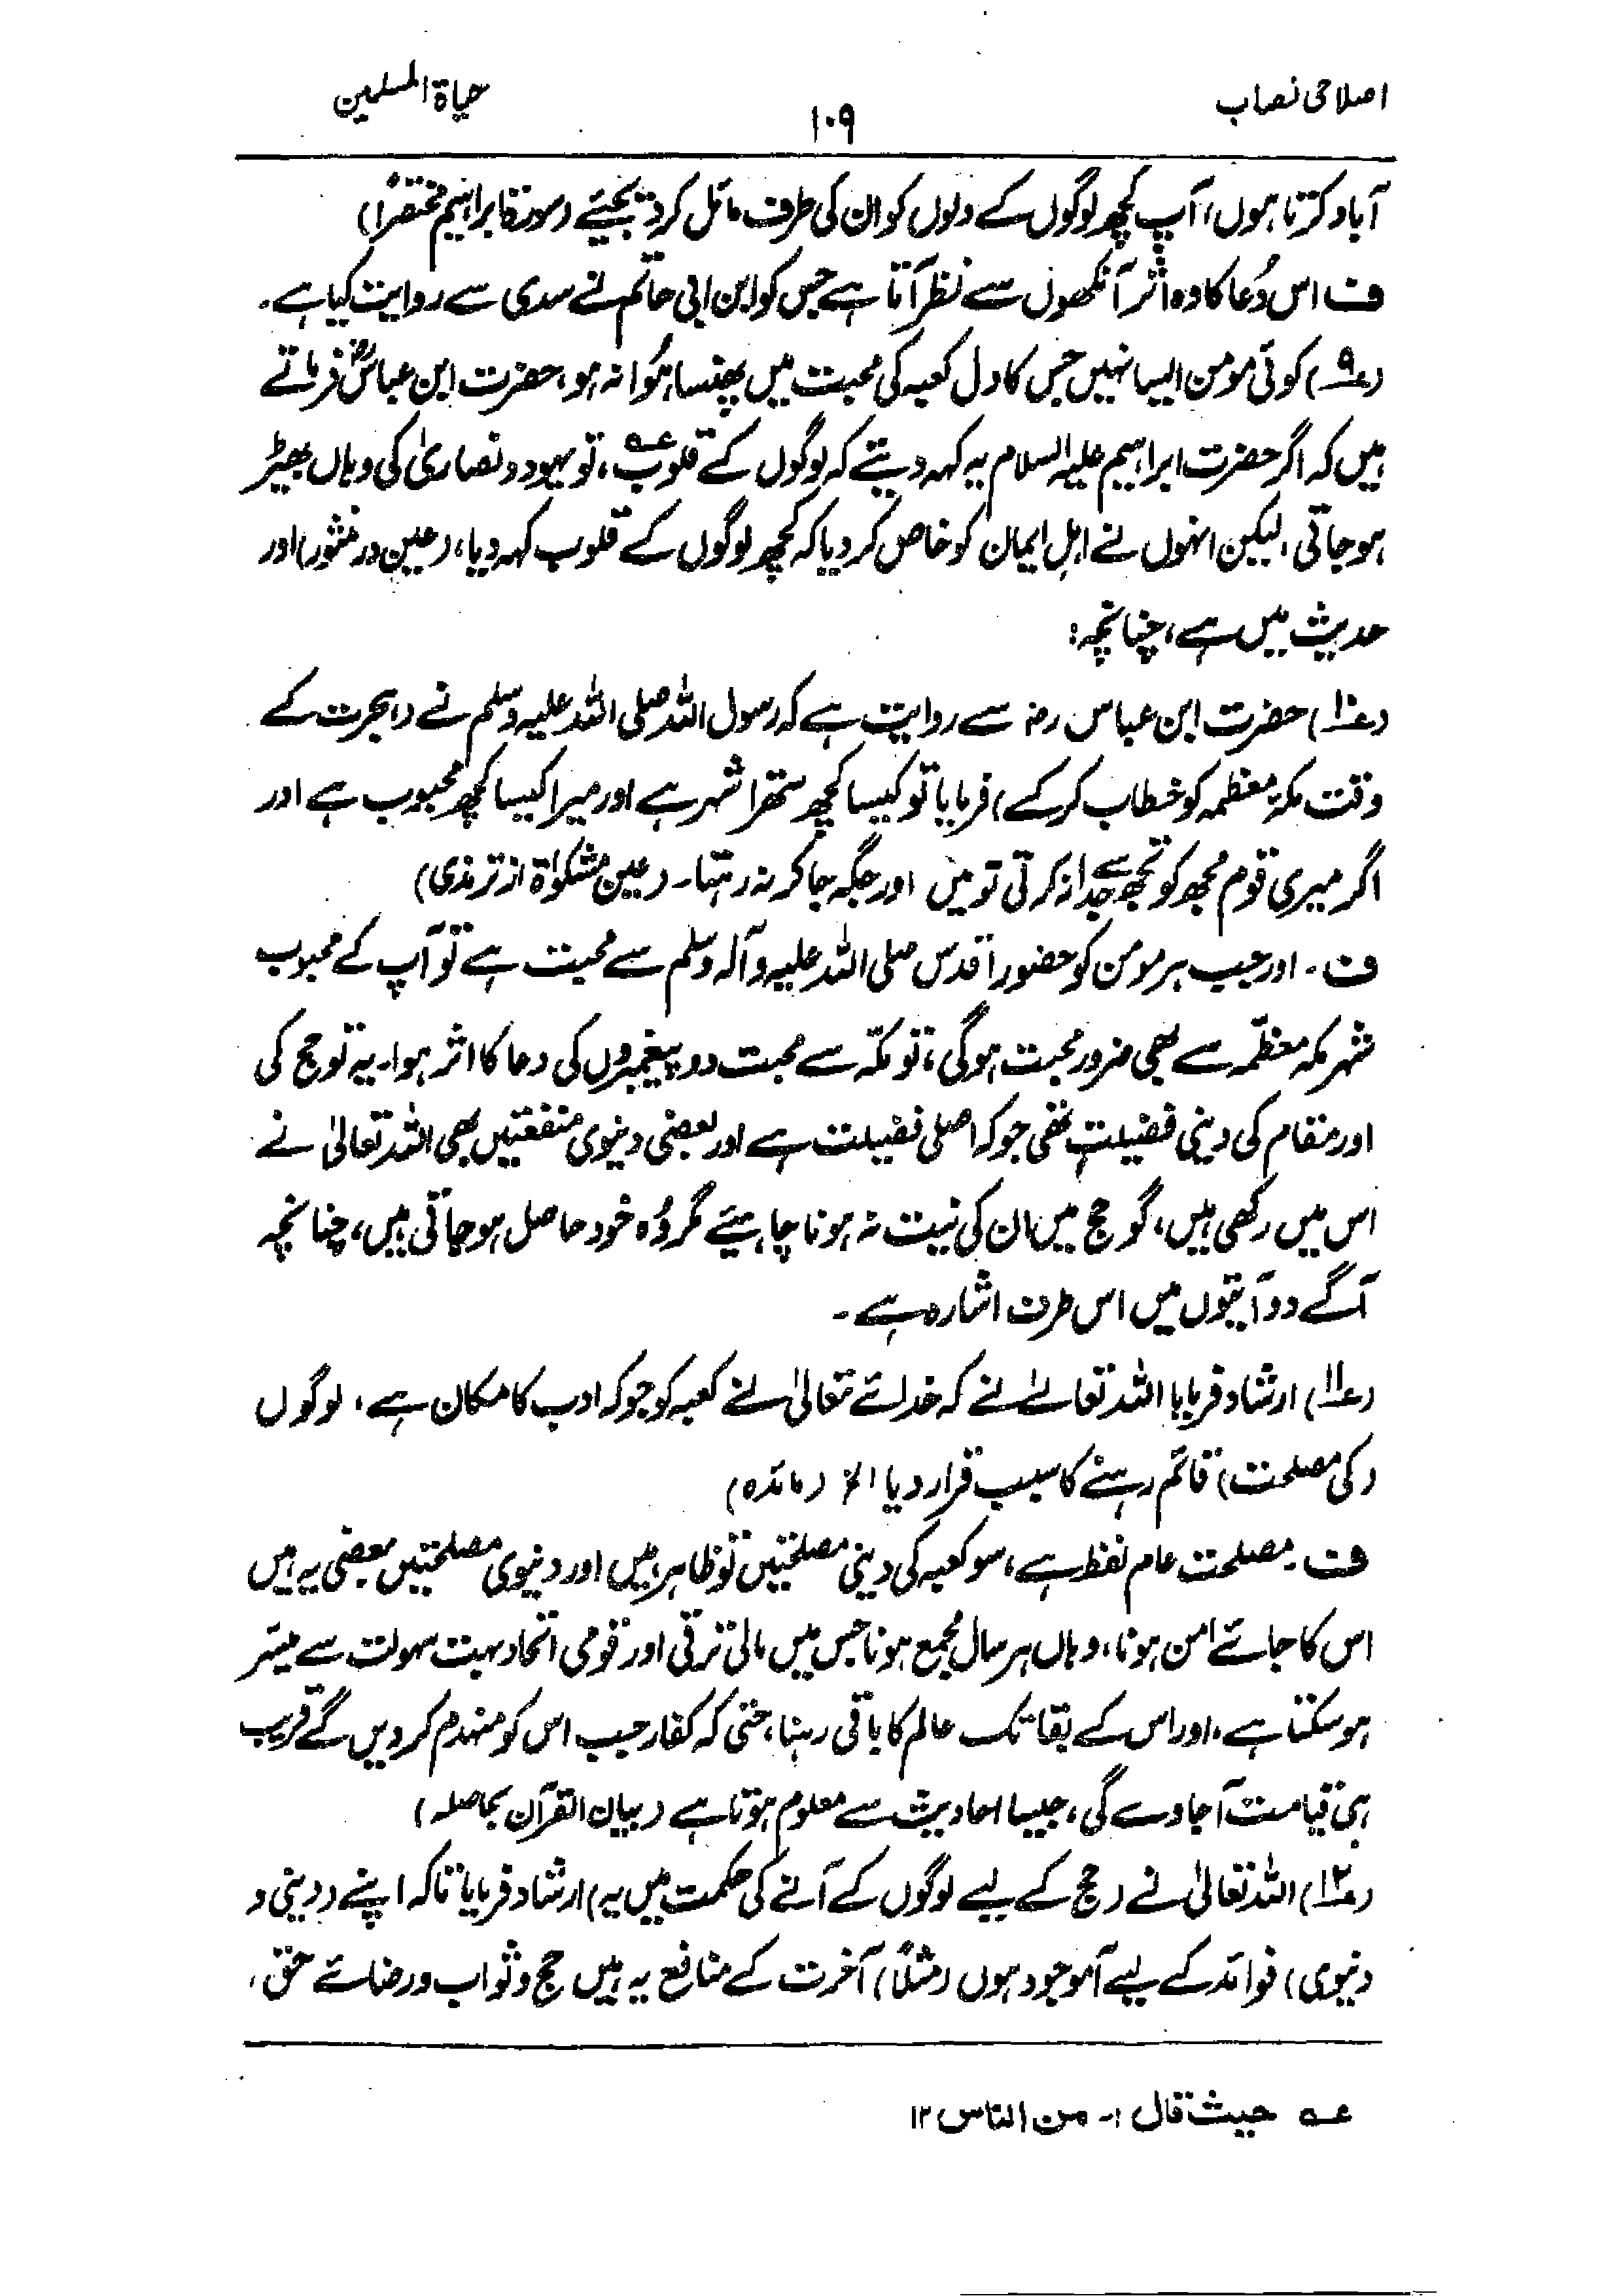 اصلاحی نصاب
۱۰۹
حیاۃ المسلمین
آباد کرتا ہوں، آپ کچھ لوگوں کے دلوں کو ان کی طرف مائل کر دیجئے (سورۃ ابراہیم مختصراً)
ف اس دُعا کا وہ اثر آنکھوں سے نظر آتا ہے جس کو ابن ابی حاتم نے سدی سے روایت کیا ہے۔
(ع۹) کوئی مومن ایسا نہیں جس کا دل کعبہ کی محبت میں پھنسا ہُوا نہ ہو، حضرت ابن عباسؓ فرماتے
ہیں کہ اگر حضرت ابراہیم علیہ السلام یہ کہہ دیتے کہ لوگوں کے قلوب عہ، تو یہود و نصاریٰ کی وہاں بھیڑ
ہو جاتی، لیکن انہوں نے اہلِ ایمان کو خاص کر دیا کہ کچھ لوگوں کے قلوب کہہ دیا، (عین در منثور) اور
حدیث میں ہے، چنانچہ:
(ع۱۰) حضرت ابن عباس رضہ سے روایت ہے کہ رسول اللہ صلی اللہ علیہ وسلم نے (ہجرت کے
وقت مکۂ معظمہ کو خطاب کر کے) فرمایا تو کیسا کچھ ستھرا شہر ہے اور میرا کیسا کچھ محبوب ہے اور
اگر میری قوم مجھ کو تجھ سے جدا نہ کرتی تو میں اور جگہ جا کر نہ رہتا۔ (عین مشکوٰۃ از ترمذی)
ف۔ اور جب ہر مومن کو حضور اقدس صلی اللہ علیہ وآلہ وسلم سے محبت ہے تو آپ کے محبوب
شہر مکہ معظّمہ سے بھی ضرور محبت ہوگی، تو مکّہ سے محبت دو پیغمبروں کی دعا کا اثر ہوا۔ یہ تو حج کی
اور مقام کی دینی فضیلت تھی جو کہ اصلی فضیلت ہے اور بعضی دنیوی منفعتیں بھی اللہ تعالیٰ نے
اس میں رکھی ہیں، گو حج میں ان کی نیت نہ ہونا چاہیئے مگر وُہ خود حاصل ہو جاتی ہیں، چنانچہ
آگے دو آیتوں میں اس طرف اشارہ ہے۔
(ع۱۱) ارشاد فرمایا اللہ تعالےٰ نے کہ خدائے تعالیٰ نے کعبہ کو جو کہ ادب کا مکان ہے، لوگوں
(کی مصلحت) قائم رہنے کا سبب قرار دیا الخ (مائدہ)
ف۔ مصلحت عام لفظ ہے، سو کعبہ کی دینی مصلحتیں تو ظاہر ہیں اور دنیوی مصلحتیں بعضی یہ ہیں
اس کا جائے امن ہونا، وہاں ہر سال مجمع ہونا جس میں مالی ترقی اور قومی اتحاد بہت سہولت سے میسّر
ہو سکتا ہے، اور اس کے بقا تک عالم کا باقی رہنا، حتی کہ کفار جب اس کو منہدم کر دیں گے قریب
ہی قیامت آ جاوے گی، جیسا احادیث سے معلوم ہوتا ہے (بیان القرآن بحاصلہ)
(ع۱۲) اللہ تعالیٰ نے (حج کے لیے لوگوں کے آنے کی حکمت میں یہ) ارشاد فرمایا تاکہ اپنے (دینی و
دنیوی) فوائد کے لیے آموجود ہوں (مثلاً) آخرت کے منافع یہ ہیں حج و ثواب و رضائے حق،
عہ حیث قال :- من الناس ۱۲